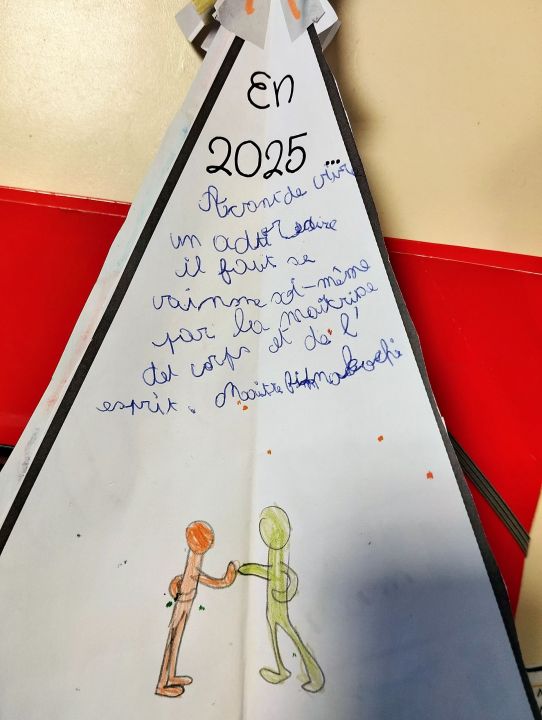 En
2025...
Avant de
un adversaire
il faut se
vainnere soi-même
par la maîtrise
det corps et de l'
esprit. Maître